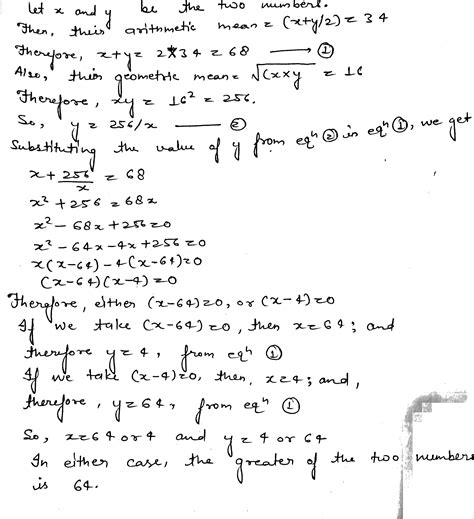 let x and y be the two numbers.
Then, their arithmetic mean = (x+y/2) = 34
Therefore, x+y = 2*34 = 68 ——→ ①
Also, their geometric mean = √(x×y = 16
Therefore, xy = 16² = 256.
So, y = 256/x —— ②
Substituting the value of y from eqⁿ ② in eqⁿ ①, we get
x + 256/x = 68
x² + 256 = 68x
x² - 68x + 256 = 0
x² - 64x - 4x + 256 = 0
x(x-64) - 4(x-64) = 0
(x-64)(x-4) = 0
Therefore, either (x-64) = 0, or (x-4) = 0
If we take (x-64) = 0, then x = 64; and
therefore y = 4, from eqⁿ ①
If we take (x-4) = 0, then, x = 4; and,
therefore, y = 64, from eqⁿ ①
So, x = 64 or 4 and y = 4 or 64
In either case, the greater of the two numbers
is 64.